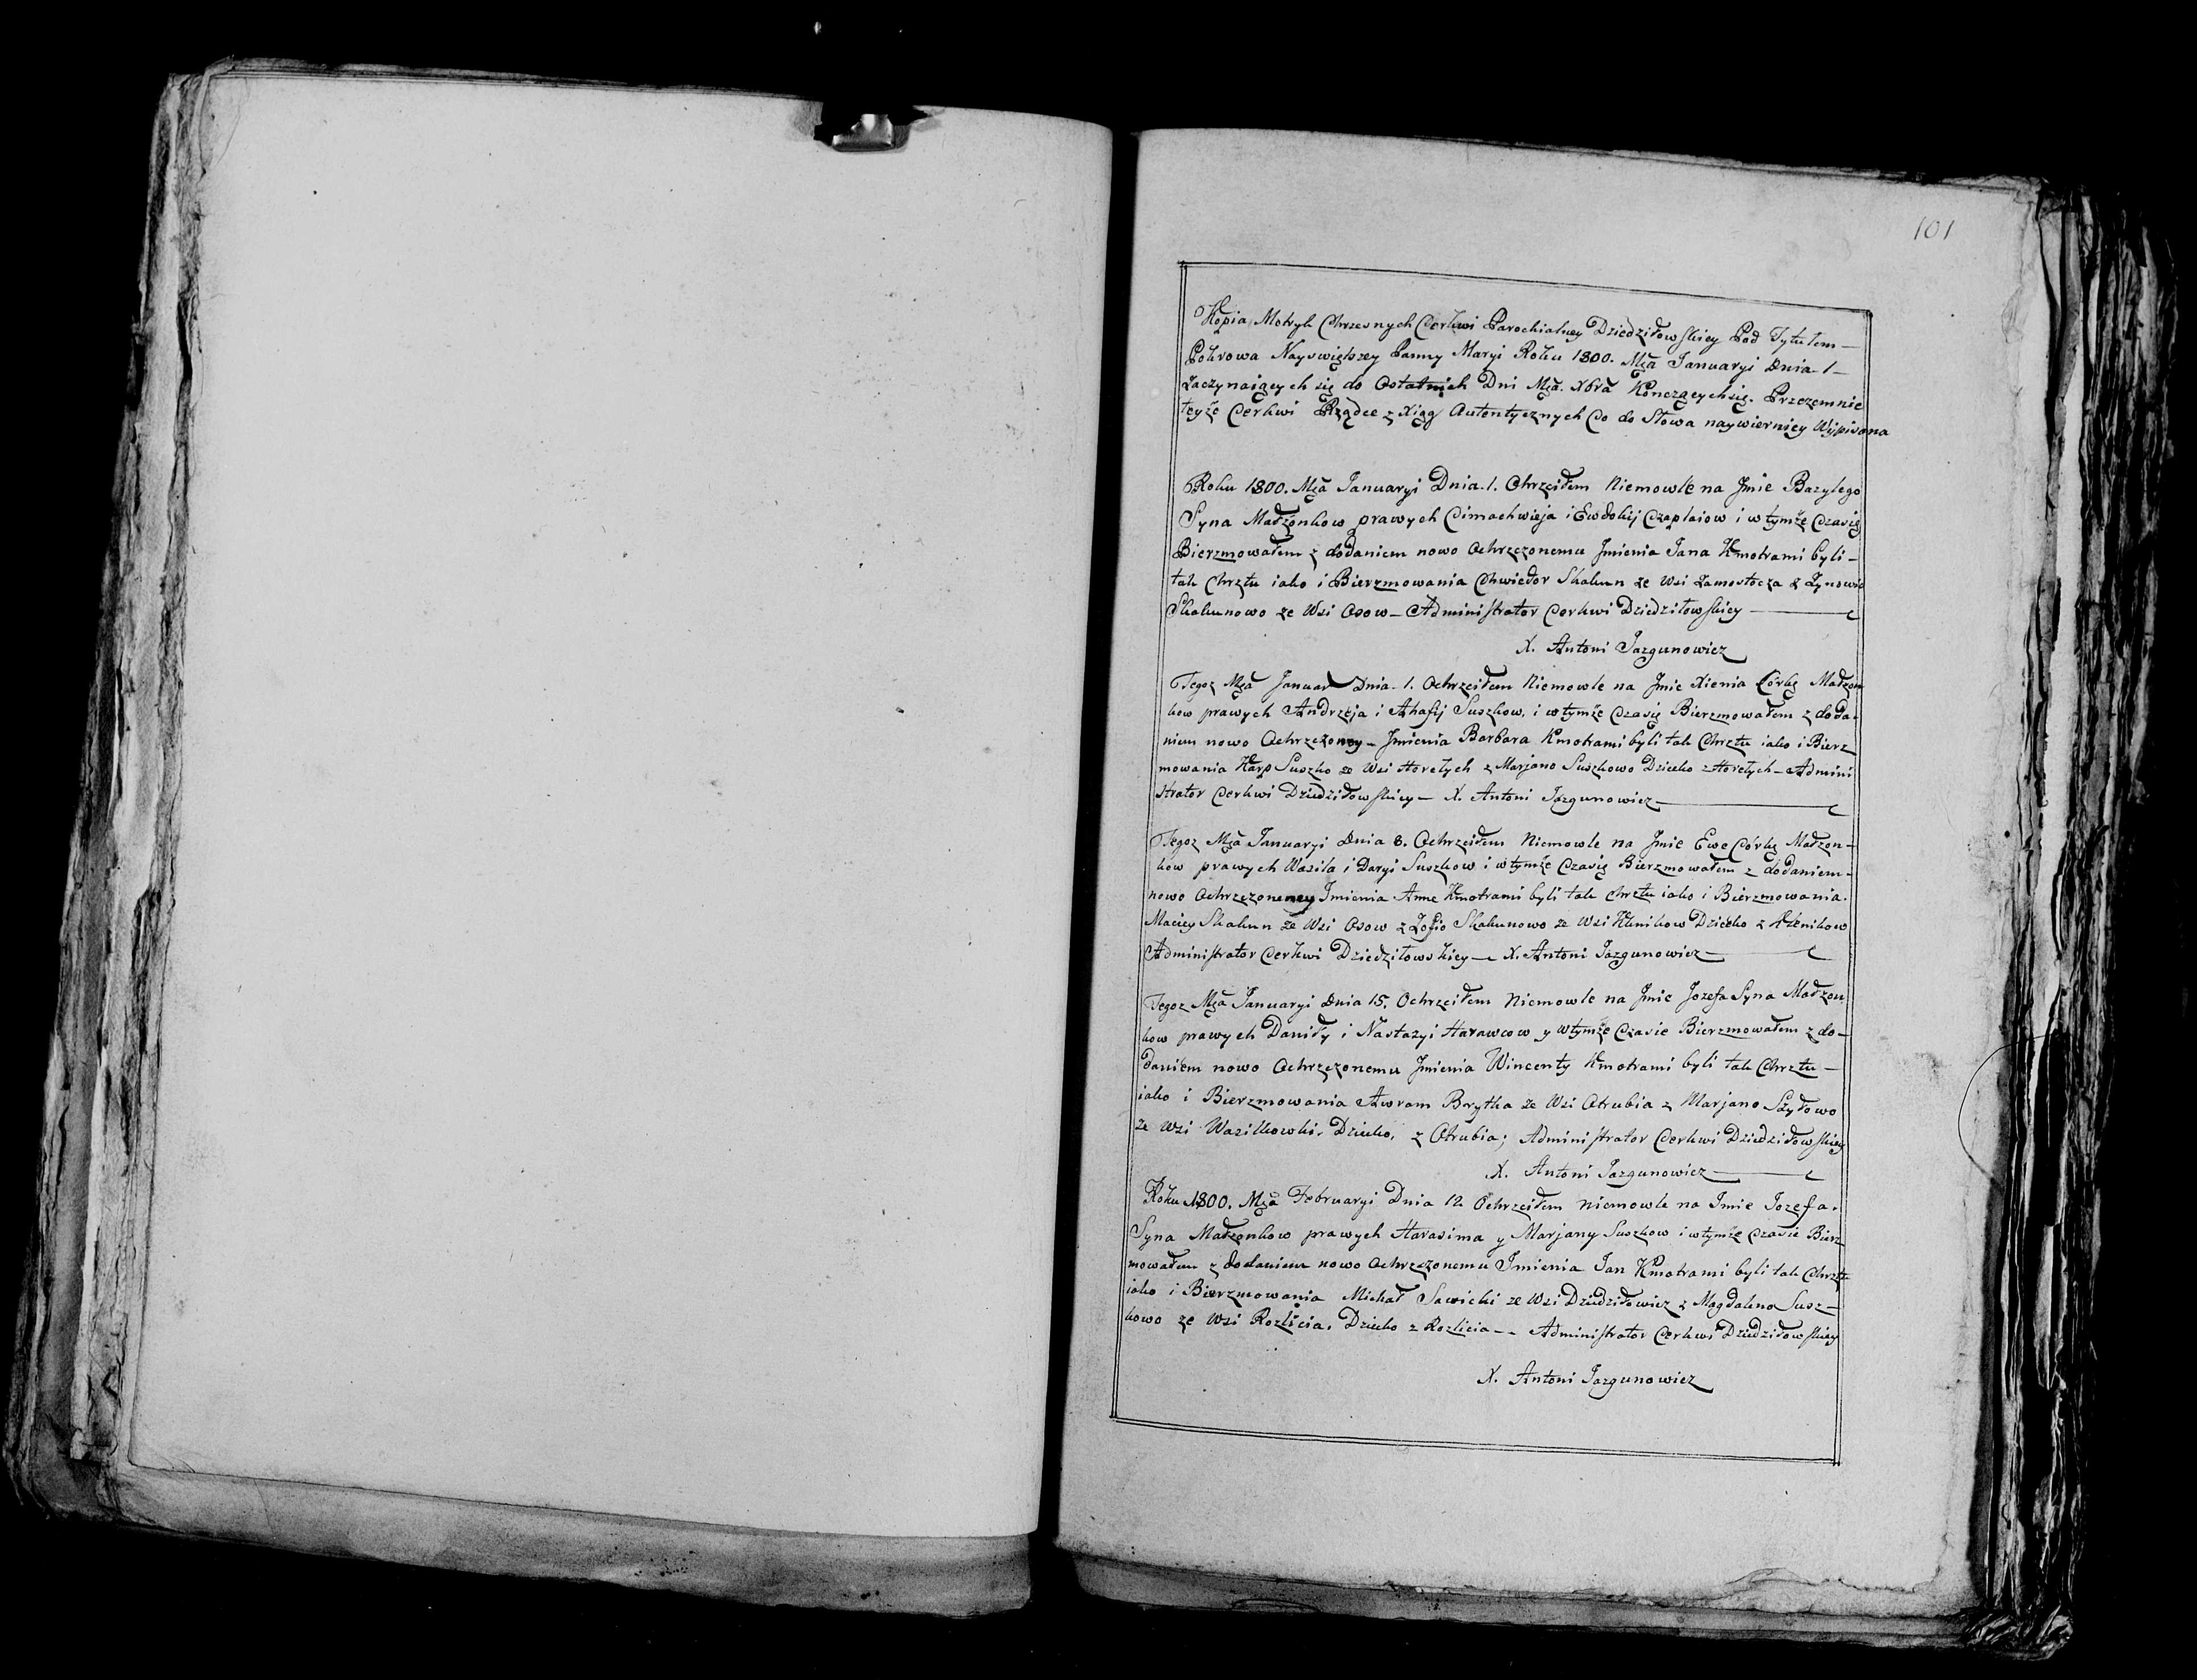 101
Kopia Metryk Chrzesnych Cerkwi Parochialney Dziedziłowskiey Pod Tytułem —
Pokrowa Nayswiętszey Panny Maryi Roku 1800. Mca Januaryi Dnia 1 —
Zaczynaiących się do Ostatnich Dni Mca. Xbra Konczącychsię. Przezemnie
teyże Cerkwi Rządce z Xiąg Autentycznych Co do Słowa naywierniey Wypisana
Roku 1800. Mca Januaryi Dnia. 1. Ochrzciłem Niemowle na Jmie Bazylego
Syna Małżonkow prawych Cimachwieja i Ewdokij Czaplaiow i wtymże Czasie
Bierzmowałem z dodaniem nowo Ochrzczonemu Jmienia Jana Kmotrami byli —
tak Chrztu iako i Bierzmowania Chwiedor Skakun ze Wsi Zamostocza z Zynowio
Skakunowo ze Wsi Osow — Administrator Cerkwi Dziedziłowskiey —
X. Antoni Jazgunowicz
Tegoz Mca Januar Dnia. 1. Ochrzciłem Niemowle na Jmie Xienia Córkę Małżon
kow prawych Andrzeja i Ahafij Suszkow, i wtymże Czasie Bierzmowałem z doda-
niem nowo Ochrzczoney — Jmienia Barbara Kmotrami byli tak Chrztu iako i Bierz
mowania Karp Suszko ze Wsi Horełych z Marjano Suszkowo Dziecko z Horełych — Admini
strator Cerkwi Dziedziłowskiey — X. Antoni Jazgunowicz —
Tegoz Mca Januaryi Dnia 8. Ochrzciłem Niemowle na Jmie Ewe Córkę Małżon —
kow prawych Wasila i Daryi Suszkow i wtymże Czasie Bierzmowałem z dodaniem —
nowo Ochrzczoneney Jmienia Anne Kmotrami byli tak Chrztu iako i Bierzmowania.
Maciey Skakun ze Wsi Osow z Zofio Skakunowo ze Wsi Klenikow Dziecko z Klenikow
Administrator Cerkwi Dziedziłowskiey — X. Antoni Jazgunowicz —
Tegoz Mca Januaryi Dnia 15. Ochrzciłem Niemowle na Jmie Jozefa Syna Małżon
kow prawych Daniły i Nastazyi Harawcow y wtymże Czasie Bierzmowałem z do —
daniem nowo Ochrzczonemu Jmienia Wincenty Kmotrami byli tak Chrztu —
iako i Bierzmowania Awram Brytka ze Wsi Otrubia z Marjano Szydłowo
ze Wsi Wasilkowki. Dziecko. z Otrubia; Administrator Cerkwi Dziedziłowskiey
X. Antoni Jazgunowicz —
Roku 1800. Mca Februaryi Dnia 12. Ochrzciłem Niemowle na Jmie Jozefa.
Syna Małżonkow prawych Harasima y Marjany Suszkow i wtymże Czasie Bierz
mowałem z dodaniem nowo Ochrzczonemu Jmienia Jan Kmotrami byli tak Chrztu
iako i Bierzmowania Michał Sawicki ze Wsi Dziedziłowicz z Magdaleno Susz —
kowo ze Wsi Rozlicia. Dziecko z Rozlicia — Administrator Cerkwi Dziedziłowskiey
X. Antoni Jazgunowicz